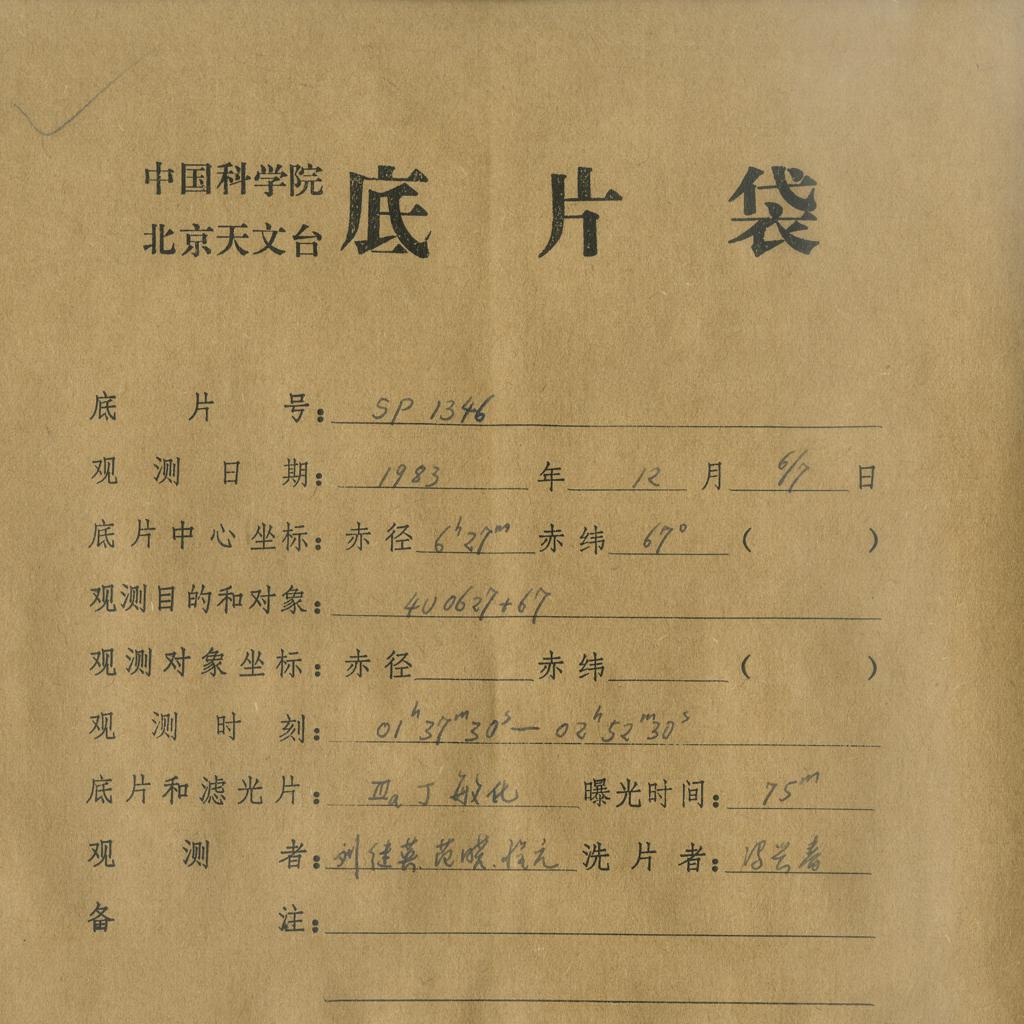 中国科学院
北京天文台
底片袋
底片号：SP 1346
观测日期：1983年12月6/7日
底片中心坐标：赤径6ʰ27ᵐ赤纬67°（ ）
观测目的和对象：4U0627+67
观测对象坐标：赤径 赤纬 （ ）
观测时刻：01ʰ37ᵐ30ˢ—02ʰ52ᵐ30ˢ
底片和滤光片：Ⅲa J 敏化 曝光时间：75ᵐ
观测者：刘 英 范 洗片者：
备注：